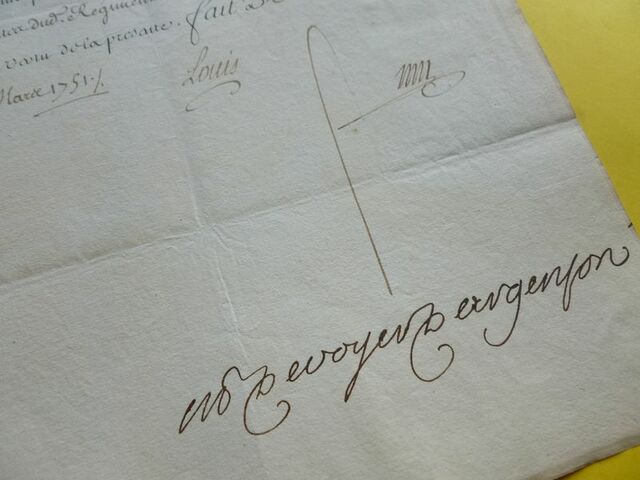 dud. Regiment
vertu de la presente. fait
Mars 1751.
Louis
MR DevoyerDargenson